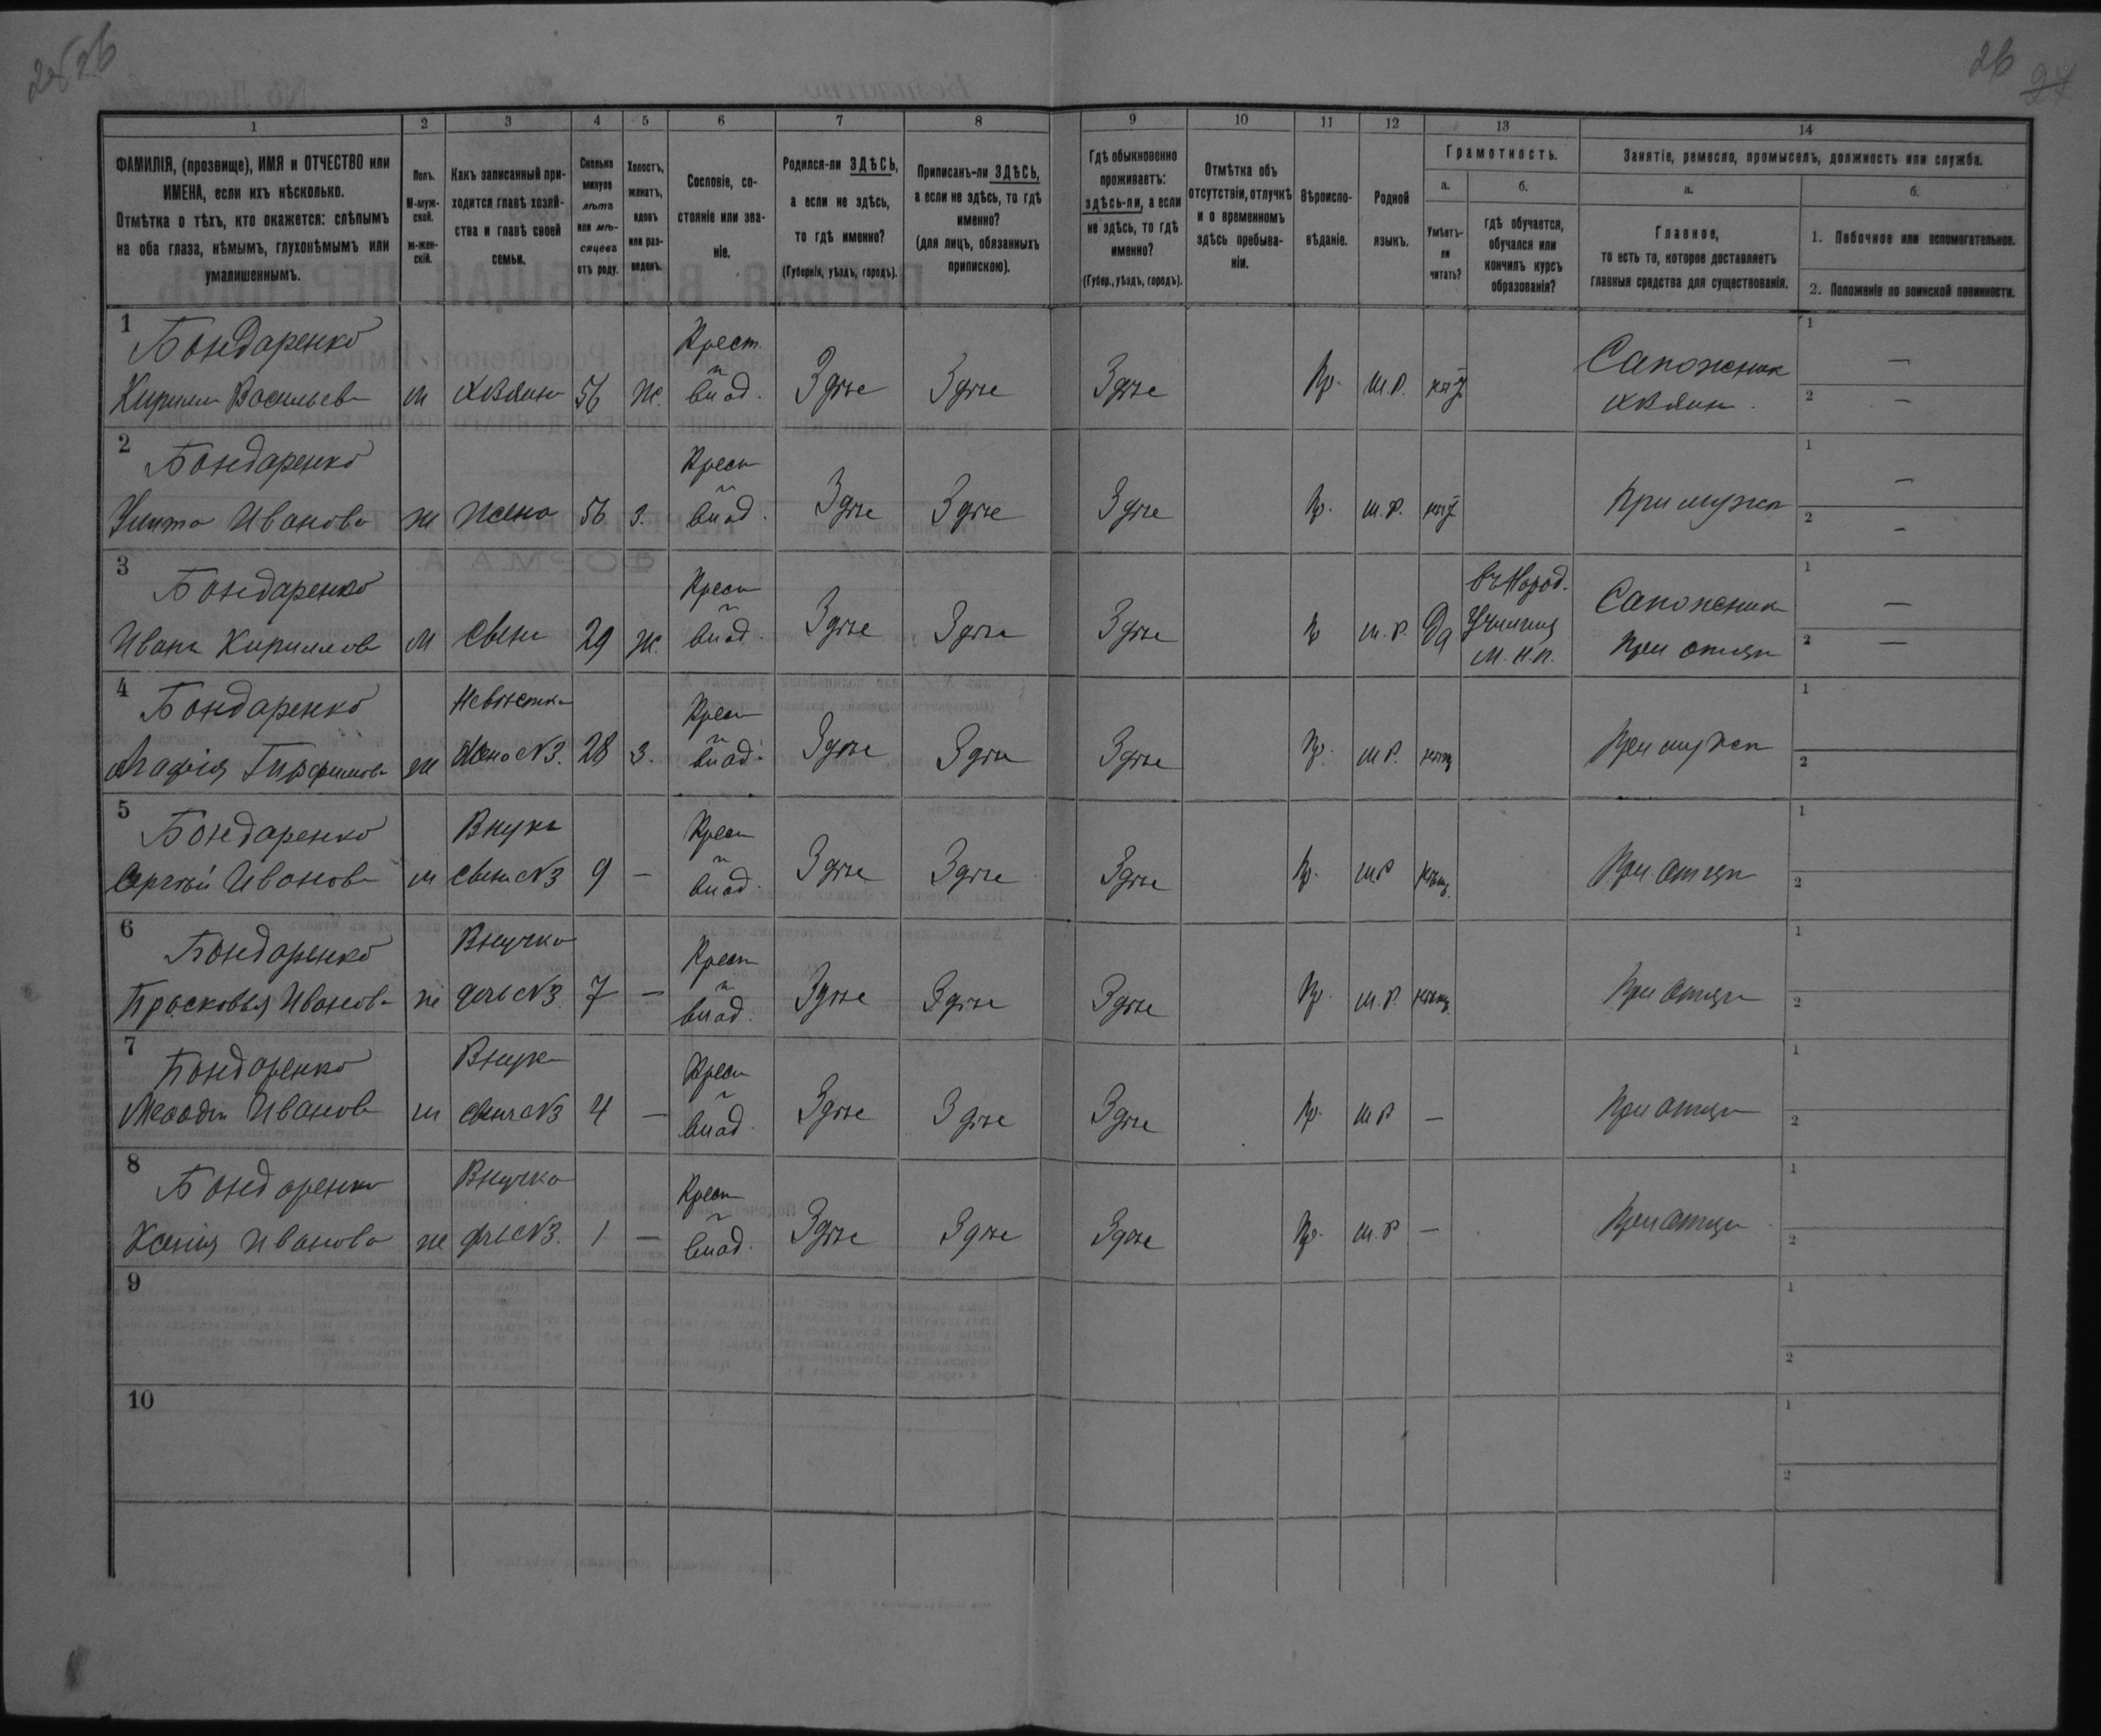 26
26
1 2 3 4 5 6 7 8 9 10 11 12 13 14
ФАМИЛІЯ, (прозвище), ИМЯ и ОТЧЕСТВО или
ИМЕНА, если ихъ нѣсколько.
Отмѣтка о тѣхъ, кто окажется: слѣпымъ
на оба глаза, нѣмымъ, глухонѣмымъ или
умалишеннымъ.
Полъ.
М-муж-
ской.
ж-жен-
скій.
Какъ записанный при-
ходится главѣ хозяй-
ства и главѣ своей
семьи.
Сколько
минуло
лѣтъ
или мѣ-
сяцевъ
отъ роду.
Холостъ,
женатъ,
вдовъ
или раз-
веденъ.
Сословіе, со-
стояніе или зва-
ніе.
Родился-ли ЗДѢСЬ,
а если не здѣсь,
то гдѣ именно?
(Губернія, уѣздъ, городъ).
Приписанъ-ли ЗДѢСЬ,
а если не здѣсь, то гдѣ
именно?
(для лицъ, обязанныхъ
припискою).
Гдѣ обыкновенно
проживаетъ:
здѣсь-ли, а если
не здѣсь, то гдѣ
именно?
(Губер., уѣздъ, городъ).
Отмѣтка объ
отсутствіи, отлучкѣ
и о временномъ
здѣсь пребыва-
ніи.
Вѣроиспо-
вѣданіе.
Родной
языкъ.
Грамотность.
а.
Умѣетъ-
ли
читать?
б.
гдѣ обучается,
обучался или
кончилъ курсъ
образованія?
Занятіе, ремесло, промыселъ, должность или служба.
а.
Главное,
то есть то, которое доставляетъ
главныя средства для существованія.
б.
1. Побочное или вспомогательное.
2. Положеніе по воинской повинности.
1
Бондаренко Крест. Сапожник 1 —
Кирилъ Васильевъ м хвяинъ 56 ж. влад. Здѣсь Здѣсь Здѣсь Пр. М.Р. хвяин. 2 —
2
Бондаренко Крест 1 —
Иванова ж жена 56 з. влад. Здѣсь Здѣсь Здѣсь Пр. М.Р. при мужѣ 2 -
3
Бондаренко Крест въ Народ. Сапожник 1 —
Иванъ Кирилловъ м сынъ 29 ж. влад. Здѣсь Здѣсь Здѣсь Пр М.Р. Да Училищ М.Н.П. при отцѣ 2 —
4
Бондаренко Невѣстка Крест 1
Агафія ж жена №3. 28 з. влад. Здѣсь Здѣсь Здѣсь Пр. М.Р. нѣтъ при мужѣ 2
5
Бондаренко Внукъ Крест 1
Сергѣй Ивановъ м сынъ №3 9 — влад. Здѣсь Здѣсь Здѣсь Пр. М.Р нѣтъ при отцѣ 2
6
Бондаренко Внучка Крест 1
Прасковья Иванова ж дочь №3. 7 — влад. Здѣсь Здѣсь Здѣсь Пр. М.Р. нѣтъ при отцѣ 2
7
Бондаренко Внукъ Крест 1
Ивановъ м сынъ №3 4 — влад. Здѣсь Здѣсь Здѣсь Пр. М Р — при отцѣ 2
8
Бондаренко Внучка Крест 1
Ксенія Иванова ж дочь №3. 1 — влад. Здѣсь Здѣсь Здѣсь Пр. М.Р — при отцѣ 2
9 1
2
10 1
2